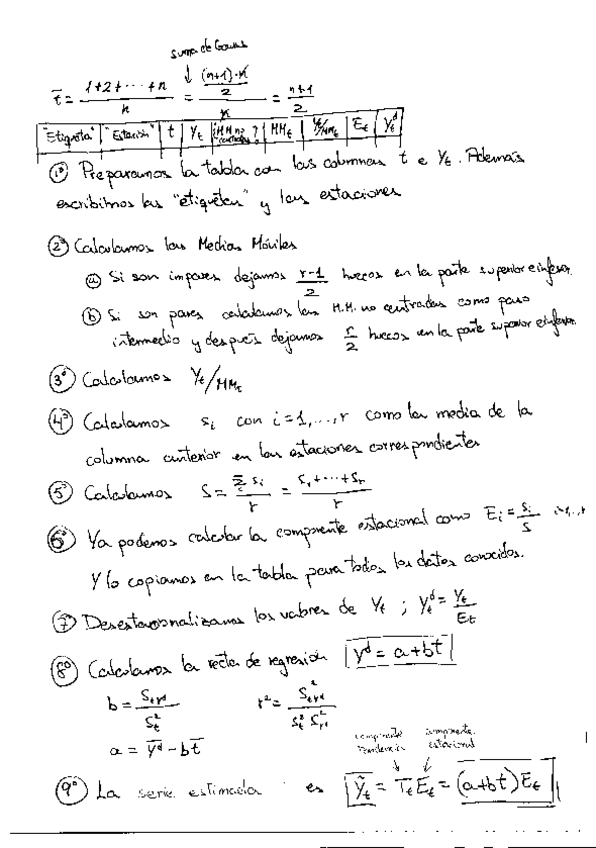 suma de Gauss
t̄ = (1+2+···+n)/n = (((n+1)·n)/2)/n = (n+1)/2
"Etiqueta" | "Estación" | t | Yt | ¿MM no centradas? | MMt | Yt/MMt | Et | Yt^d
1º Preparamos la tabla con las columnas t e Yt. Además
escribimos las "etiquetas" y las estaciones
2º Calculamos las Medias Móviles
a) Si son impares dejamos (r-1)/2 huecos en la parte superior e inferior.
b) Si son pares calculamos las M.M. no centradas como paso
intermedio y después dejamos r/2 huecos en la parte superior e inferior.
3º Calculamos Yt/MMt
4º Calculamos si con i=1,...,r como la media de la
columna anterior en las estaciones correspondientes
5º Calculamos S = (Σ si)/r = (S1+···+Sr)/r
6º Ya podemos calcular la componente estacional como Ei = si/s i=1,..,r
Y lo copiamos en la tabla para todos los datos conocidos.
7º Desestacionalizamos los valores de Yt ; Yt^d = Yt/Et
8º Calculamos la recta de regresión Y^d = a+bt
b = S_tyd/S_t^2 r^2 = S_tyd^2/(S_t^2 S_yd^2)
a = Ȳ^d - b t̄
componente tendencia componente estacional
9º La serie estimada es Ŷt = Tt Et = (a+bt) Et